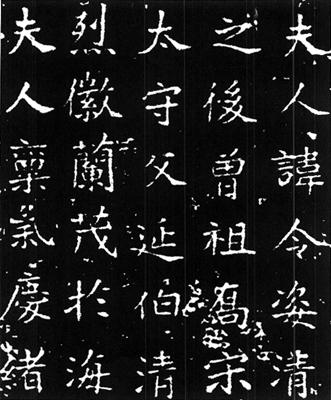 夫人諱令姿清
之後曽祖喬宋
太守父延伯清
烈徽蘭茂於海
夫人稟氣慶緒